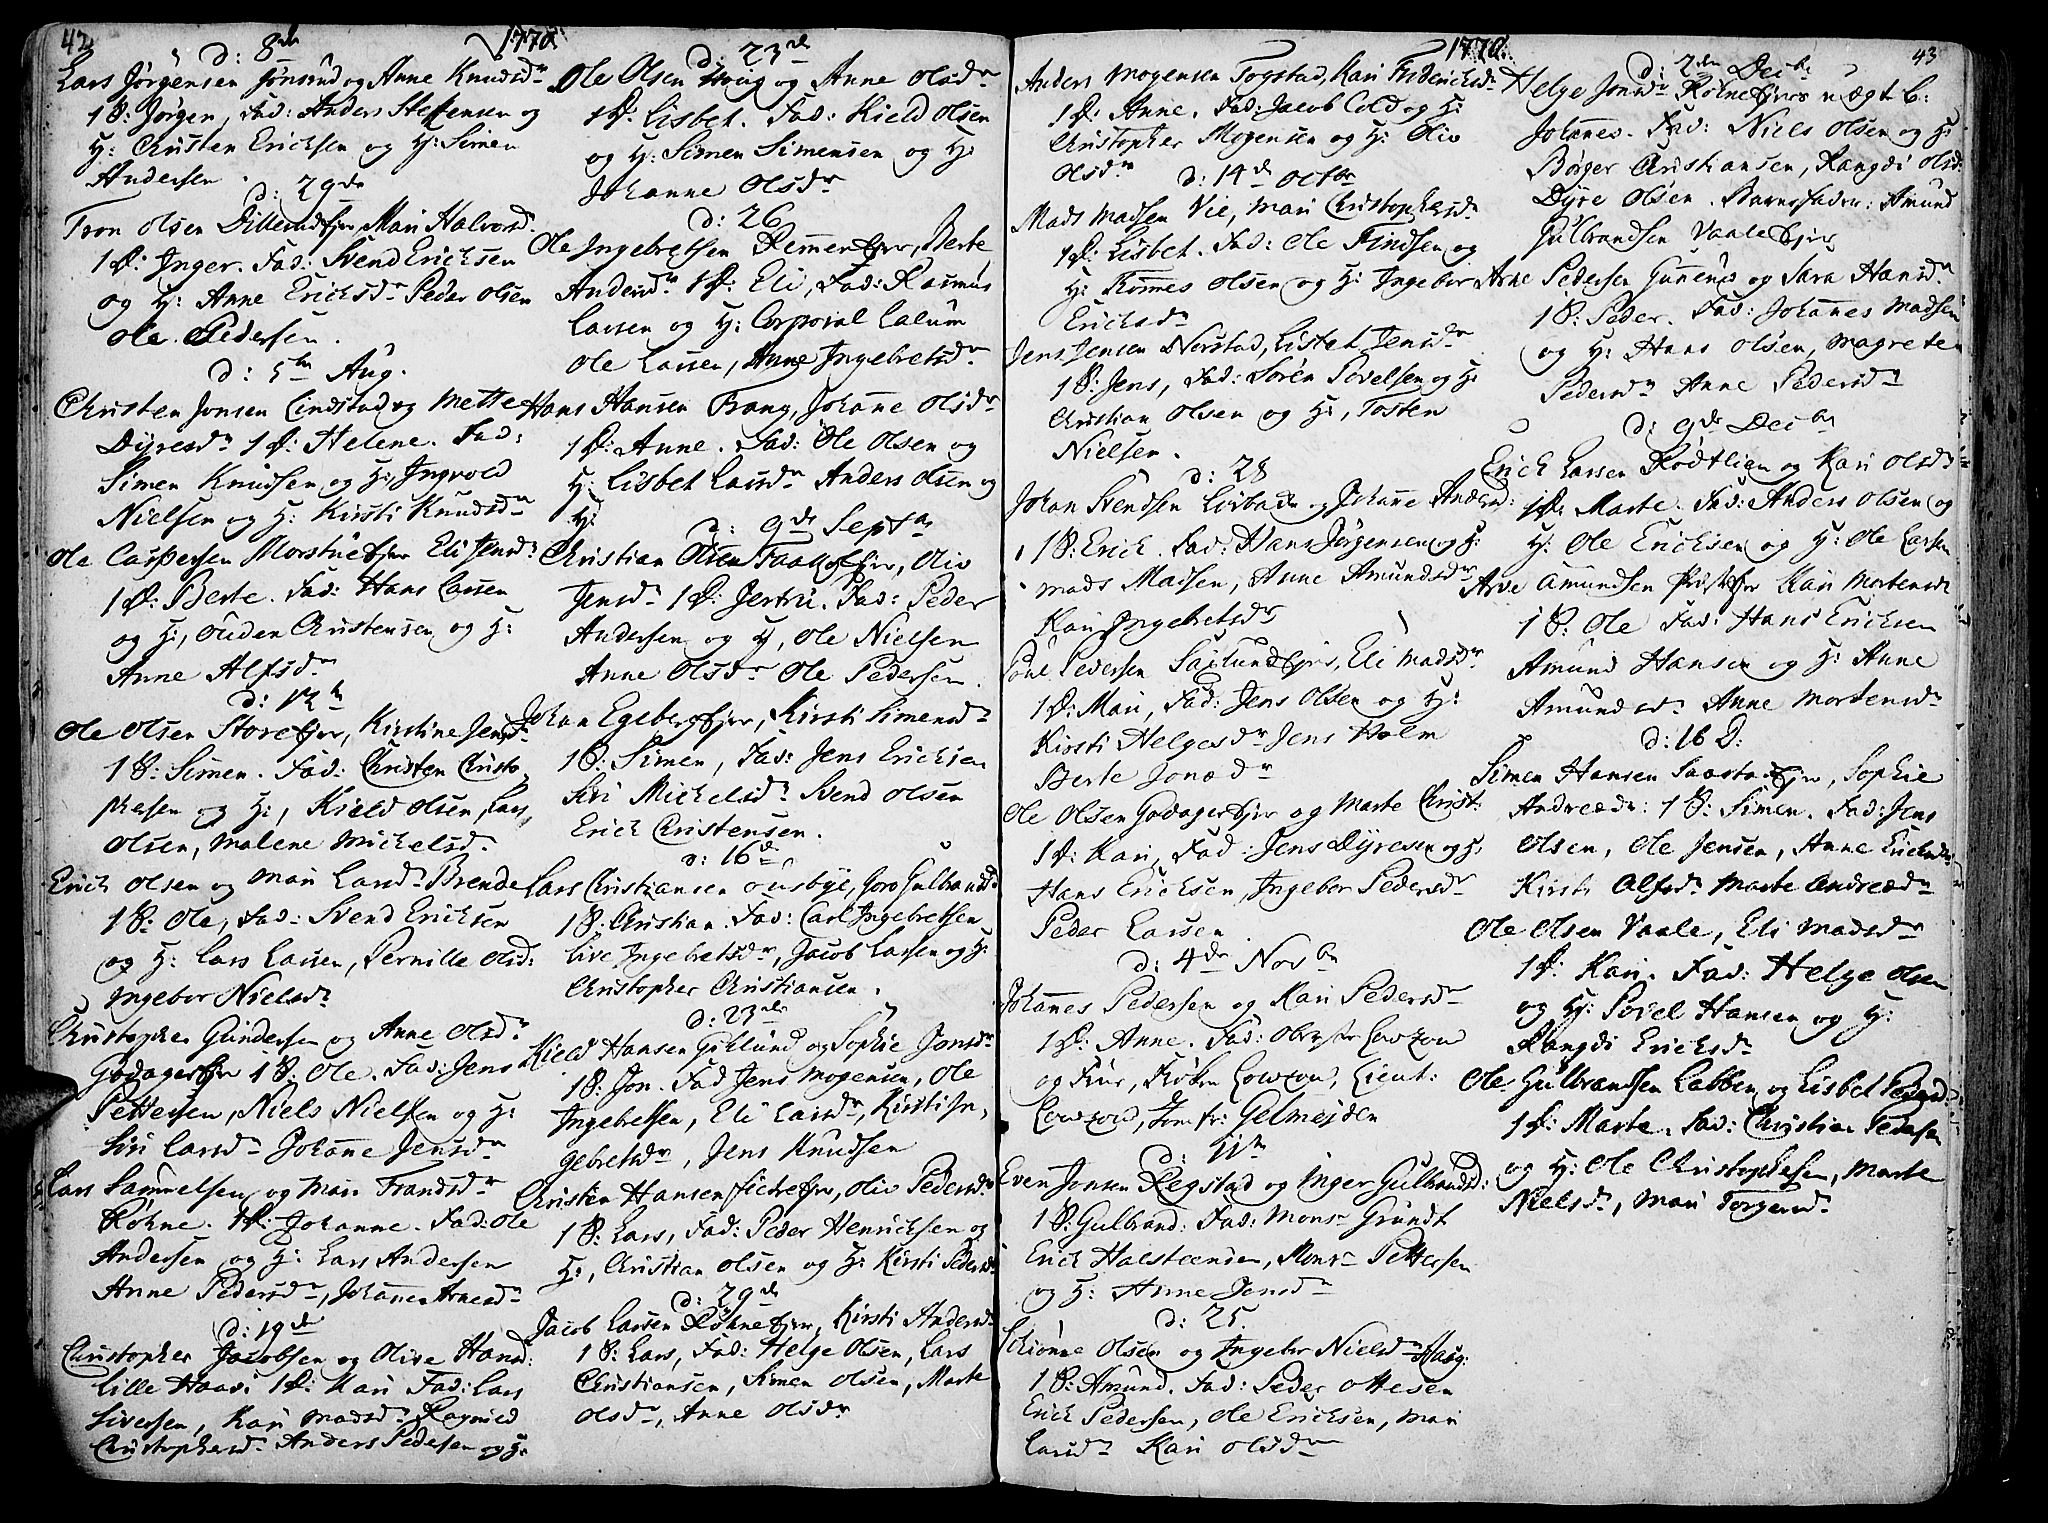 42
1770
d: 8de
Lars Jørgensen Jonsrud og Anne Knudsdr
1 S: Jørgen, Fad: Anders Steffensen og
H: Christen Erichsen og H: Simen
Andersen.
d: 29de
Tron Olsen Dillerudejer, Mari Halvorsd.
1 D: Inger. Fad: Svend Ericksen
og H: Anne Ericksdr Peder Olsen
Ole Pedersen.
d: 5te Aug.
Christen Jonsen Lindstad og Mette
Dyresdr 1 D: Helene. Fad:
Simen Knudsen og H: Ingvold
Nielsen og H: Kirsti Knudsdr
Ole Caspersen Morstuejer Eli Jensdr
1 D: Berte. Fad: Hans Larsen
og H:, Ouden Christensen og H:
Anne Alfsdr
d: 12te
Ole Olsen Storeejer, Kirstine Jensdr
1 S: Simen. Fad: Christen Christo
phersen og H:, Kield Olsen, Lars
Olsen, Malene Mickelsdr
Erich Olsen og Mari Larsdr Brende
1 S: Ole, Fad: Svend Ericksen
og H: Lars Larsen, Pernille Olsd:
Ingebor Nielsdr
Christopher Gundersen og Anne Olsdr
Godagerejer 1 S: Ole. Fad: Jens
Pettersen, Niels Nielsen og H:
Siri Larsdr Johanne Jensdr
Lars Samuelsen og Mari Frandsdr
Køhne. 1 D: Johanne. Fad: Ole
Andersen og H: Lars Andersen
Anne Pedersdr, Johanne Arnesdr
d: 19de
Christopher Jacobsen og Olive Hansd:
Lille Haavi 1 D: Kari Fad: Lars
Siversen, Kari Madsdr Ragnild
Christophersdr Anders Pedersen og H:
d: 23de
Ole Olsen Houg og Anne Olsdr
1 D: Lisbet. Fad: Kield Olsen
og H: Simen Simensen og H:
Johanne Olsdr
d: 26
Ole Ingebretsen Remmenejer, Berte
Andersdr 1 D: Eli, Fad: Rasmus
Larsen og H: Corporal Lalum
Ole Larsen, Anne Ingebretsdr
Hans Hansen Frang, Johanne Olsdr
1 D: Anne. Fad: Ole Olsen og
H: Lisbet Larsdr Anders Olsen og
H:
d: 9de Septbr
Christian Olsen Faallejer, Oliv
Jensdr 1 D: Jertru. Fad: Peder
Andersen og H, Ole Nielsen
Anne Olsdr Ole Pedersen.
Johan Egebergejer, Kirsti Simensdr
1 S: Simen, Fad: Jens Ericksen
Siri Michelsdr Svend Olsen
Erick Christensen.
d: 16de
Lars Christiansen Ousbye, Goro Gulbrandsd:
1 S: Christian. Fad: Carl Ingebretsen
Live Ingebretsdr, Jacob Larsen og H:
Christopher Christiansen.
d: 23de
Kield Hansen Gislund og Sophie Jonsdr
1 S: Jon. Fad Jens Mogensen, Ole
Ingebretsen, Eli Larsdr, Kirsti In,
gebretsdr, Jens Knudsen
Christen Hansen ejer, Oliv Pedersdr
1 S: Lars, Fad: Peder Henricksen og
H:, Christian Olsen og H: Kirsti Pedersd:
d: 29de
Jacob Larsen Køhneejer, Kirsti Andersdr
1 S: Lars, Fad: Helge Olsen, Lars
Christiansen, Simen Olsen, Marte
Olsdr, Anne Olsdr
1770.
43
Anders Mogensen Fogstad, Kari Fredericksdr
1 D: Anne. Fad: Jacob Cold og H:
Christopher Mogensen og H: Oliv
Olsdr
d: 14de Octbr
Mads Madsen Vie, Mari Christophersdr
1 D: Lisbet. Fad: Ole Findsen og
H: Rommes Olsen og H: Ingebor
Ericksdr
Jens Jensen Norstad, Lisbet Jensdr
1 S: Jens, Fad: Soren Povelsen og H:
Christian Olsen og H:, Tosten
Nielsen.
d: 28
Johan Svendsen og Johanne Andersd:
1 S: Erick. Fad: Hans Jørgensen og H:
Mads Madsen, Anne Amundsdr
Kari Ingebretsdr
Povel Pedersen Saxlundejer, Eli Madsdr
1 D: Mari, Fad: Jens Olsen og H:
Kirsti Helgesdr Jens Holm
Berte Jonsdr
Ole Olsen Godagerejer og Marte Christ:
1 D: Kari, Fad: Jens Dyresen og H:
Hans Ericksen, Ingebor Pedersdr
Peder Larsen
d: 4de Novbr
Johannes Pedersen og Kari Pedersdr
1 D: Anne. Fad: Obrstr Lowzow
og Frue, Frøkn Lowzow, Lieut:
Lowzow, Jomfr: Gelmeyden
d: 11te
Even Jonsen Regstad og Inger Gulbrandsd:
1 S: Gulbrand: Fad: Monsr Grundt
Erick Halsteenden, Monsr Pettersen
og H: Anne Jensdr
d: 25.
Schiønne Olsen og Ingebor Nielsdr Haug:
1 S: Amund. Fad: Peder Ottesen
Erick Pedersen, Ole Ericksen, Mari
Larsdr Kari Olsdr
d: 2den Decbr
Helge Jonsdr Kølneejers uægt b:
Johannes. Fad: Niels Olsen og H:
Børger Christiansen, Rangdi Olsd:
Dyre Olsen. Barnefader: Amund
Gulbrandsen Vaaleejer
Arne Pedersen Gunerud og Sara Hansdr
1 S: Peder. Fad: Johannes Madsen
og H: Hans Olsen, Magrete
Pedersdr Anne Pedersdr
d: 9de Decbr
Erick Larsen Rødtlien og Kari Olsdr
1 D: Marte. Fad: Anders Olsen og
H: Ole Ericksen og H: Ole Larsen
Arve Amundsen Præstejer Kari Mortensdr
1 S: Ole Fad: Hans Ericksen
Amund Hansen og H: Anne
Amundsdr Anne Mortensdr
d: 16 D:
Simen Hansen Saastadejer, Sophie
Andreædr: 1 S: Simen. Fad: Jens
Olsen, Ole Jensen, Anne Ericksdr
Kirsti Alfsdr Marte Andreædr
Ole Olsen Vaale, Eli Madsdr
1 D: Kari. Fad: Helge Olsen
og H: Povel Hansen og H:
Rangdi Ericksdr
Ole Gulbrandsen Labben og Lisbet Pedersd:
1 D: Marte. Fad: Christian Pedersen
og H: Ole Christophersen, Marte
Nielsdr, Mari Torgersdr